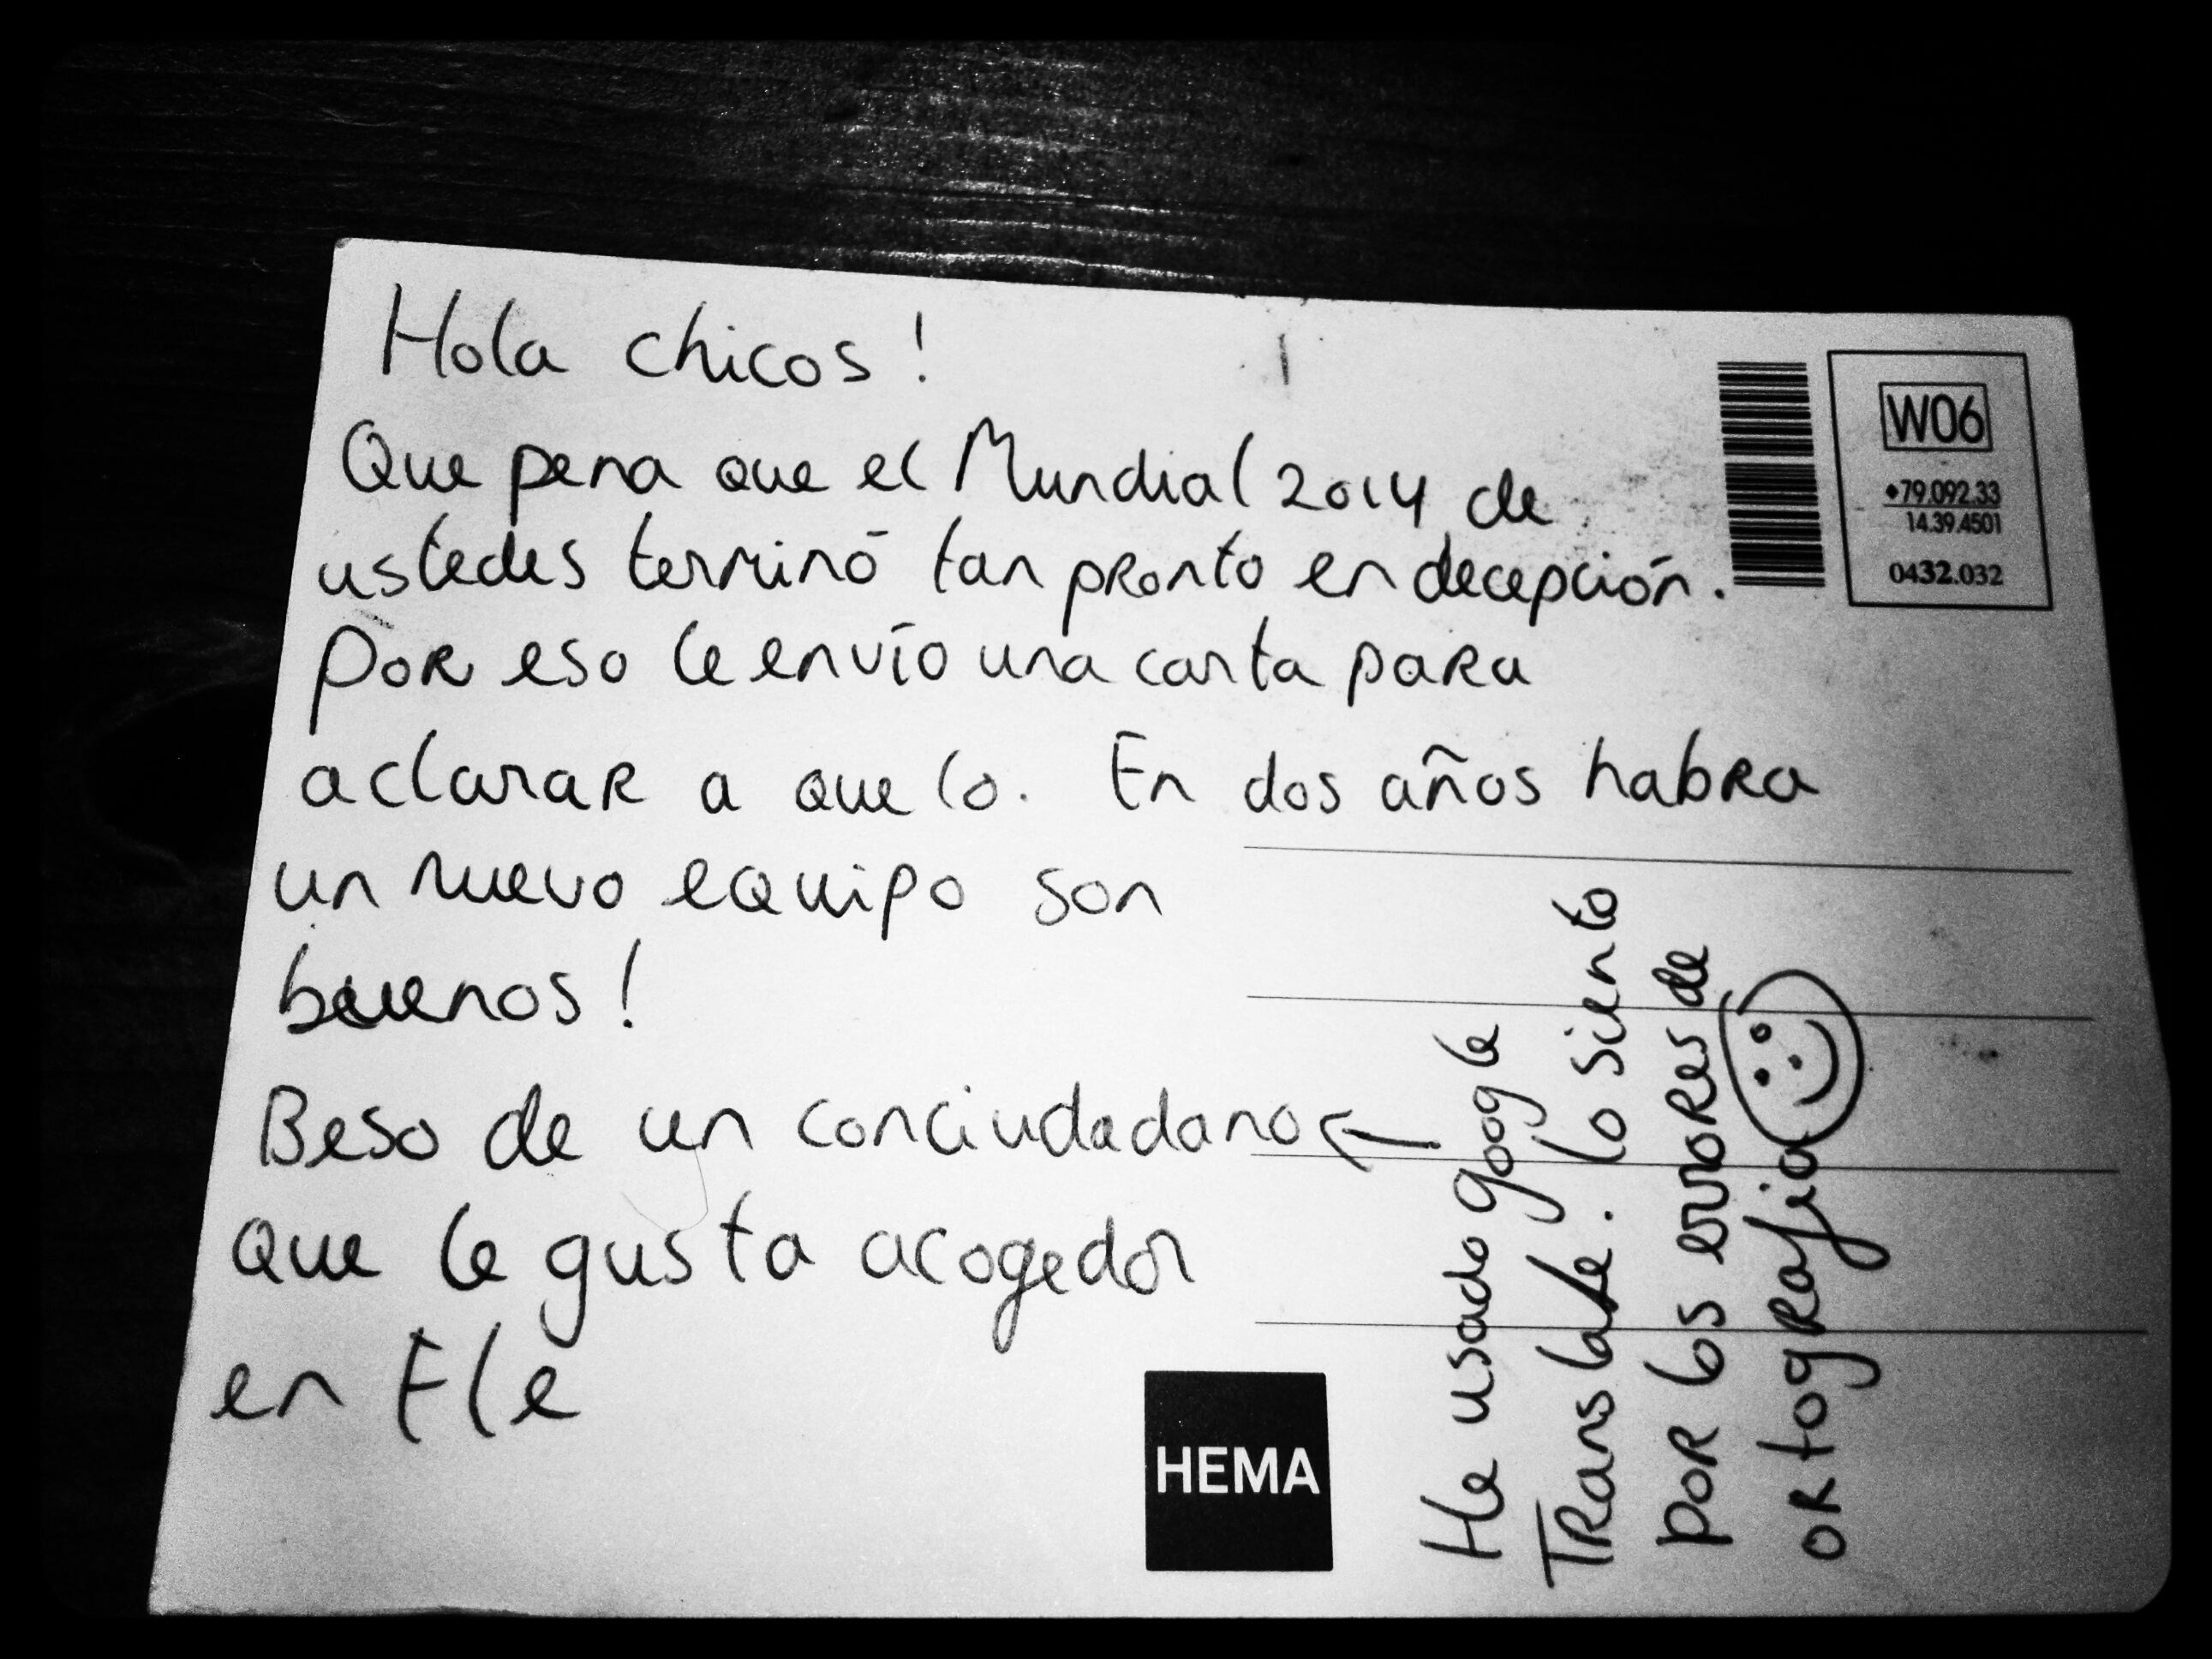 Hola chicos!
Que pena que el Mundial 2014 de
ustedes terminó tan pronto en decepción.
Por eso le envío una carta para
aclarar a que lo. En dos años habra
un nuevo equipo son
buenos!
Beso de un conciudadano
que le gusta acogedor
en Ele
W06
79.092.33
14.39.4501
0432.032
He usado google
Translate. lo siento
por los errores de
ortografia
HEMA